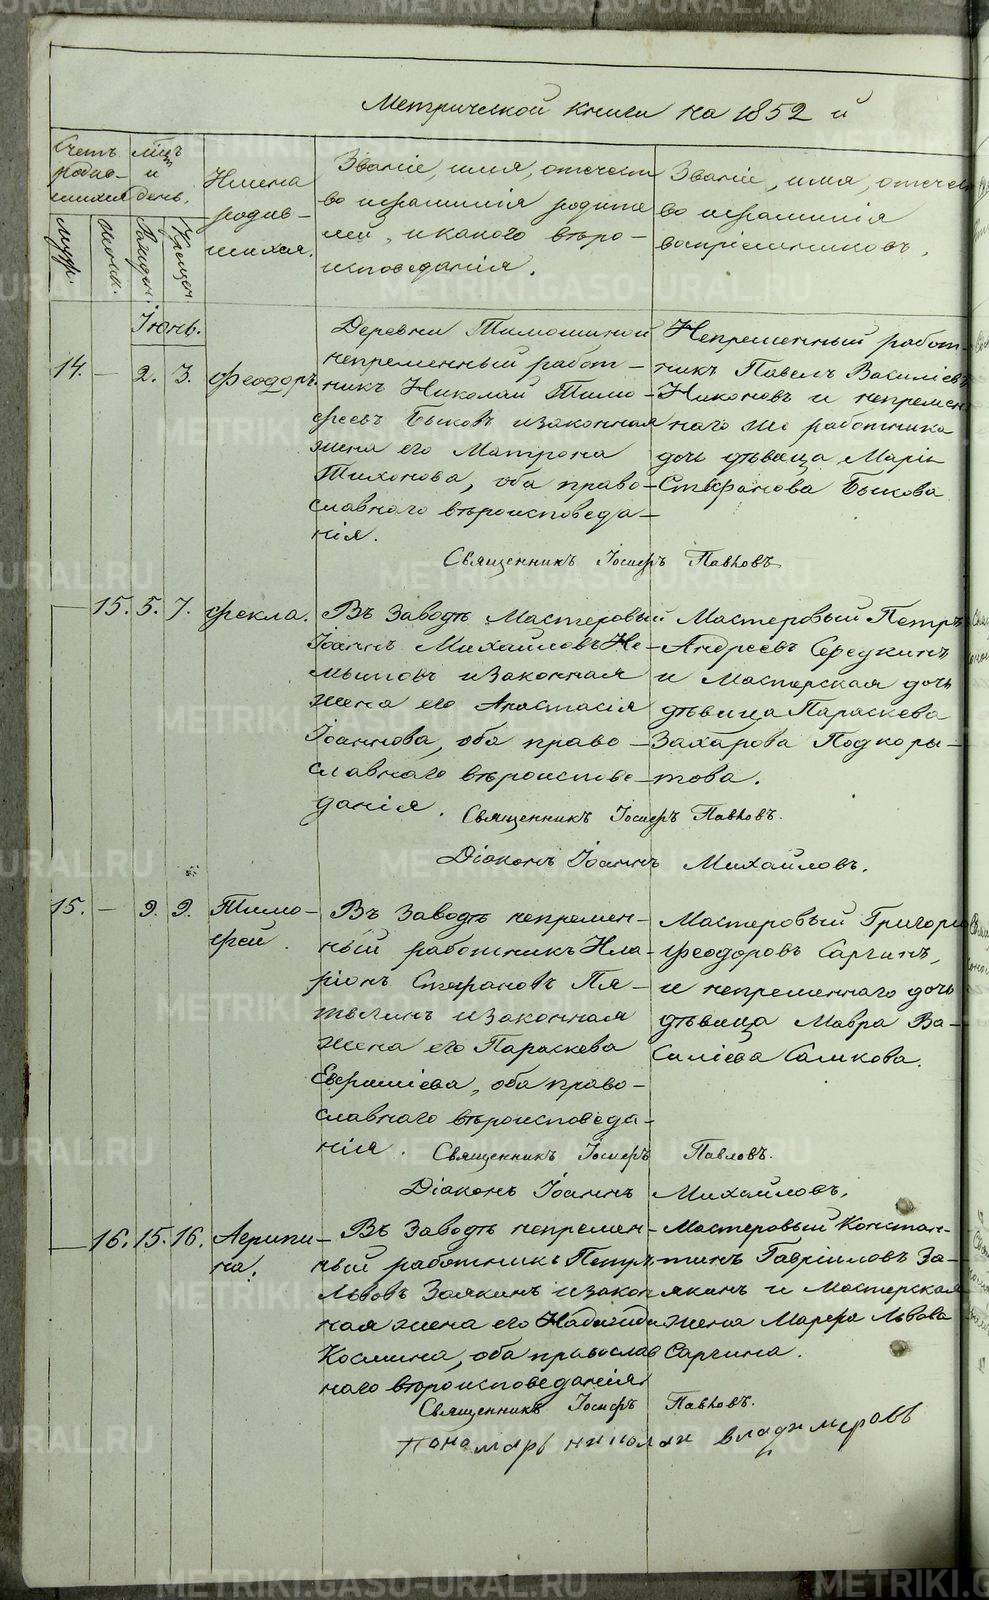 Метрической книги на 1852 й
Счетъ родив-шихся
мѣц и день.
Имена родив-шихся.
Званіе, имя, отечест
во и фамилія родите
лей, и какого вѣро-
исповѣданія.
Званіе, имя, отечест
во и фамилія
воспріемниковъ.
Муж.
Женск.
Рожден.
Крещен.
Іюнь.
14. — 2. 3. Феодоръ.
Деревни Тимошиной
непременный работ-
никъ Николай Тимо-
феевъ Быковъ и законная
жена его Матрона
Тихонова, оба право-
славнаго вѣроисповѣда-
нія.
Непременный работ-
никъ Павелъ Василіевъ
Никоновъ и непремен
наго же работника
дочь дѣвица Марія
Стефанова Быкова
Священникъ Іосифъ Павловъ
— 15. 5. 7. Фекла.
Въ Заводѣ Мастеровый
Іоаннъ Михайловъ Не-
мытовъ и законная
жена его Анастасія
Іоаннова, оба право-
славнаго вѣроисповѣ-
данія.
Мастеровый Петръ
Андреевъ Середкинъ
и Мастерская дочь
дѣвица Параскева
Захарова Подкоры-
това.
Священникъ Іосифъ Павловъ.
Діаконъ Іоаннъ Михайловъ.
15. — 9. 9. Тимо-
фей.
Въ Заводѣ непремен-
ный работникъ Ила-
ріонъ Стефановъ Пя-
тылинъ и законная
жена его Параскева
Евфиміева, оба право-
славнаго вѣроисповѣда-
нія.
Мастеровый Григорій
Феодоровъ Саргинъ,
и непременнаго дочь
дѣвица Мавра Ва-
силіева Саликова.
Священникъ Іосифъ Павловъ.
Діаконъ Іоаннъ Михайловъ.
— 16. 15. 16. Агрипи-
на.
Въ Заводѣ непремен-
ный работникъ Петръ
Львовъ Заякинъ и закон
ная жена его
Космина, оба православ
наго вѣроисповѣданія
Мастеровый Констан-
тинъ Гавріиловъ За-
якинъ и Мастерская
жена Марфа Львова
Саргина.
Священникъ Іосифъ Павловъ.
Пономарь николай владимеровъ
METRIKI.GASO-URAL.RU